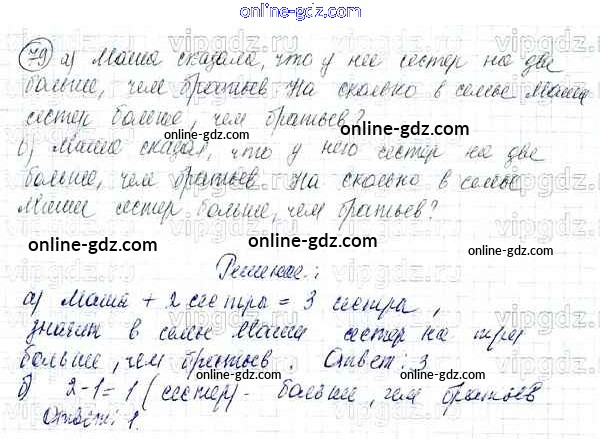 online-gdz.ru
79 а) Маша сказала, что у неё сестер на две
больше, чем братьев. На сколько в семье Маши
сестер больше, чем братьев?
online-gdz.ru
online-gdz.ru
б) Миша сказал, что у него сестер на две
больше, чем братьев. На сколько в семье
Миши сестер больше, чем братьев?
online-gdz.ru
online-gdz.ru
online-gdz.ru
Решение:
а) Маша + 2 сестры = 3 сестры,
значит в семье Маши сестер на три
больше, чем братьев. Ответ: 3
б) 2-1=1 (сестер) - больше, чем братьев
Ответ: 1.
online-gdz.ru